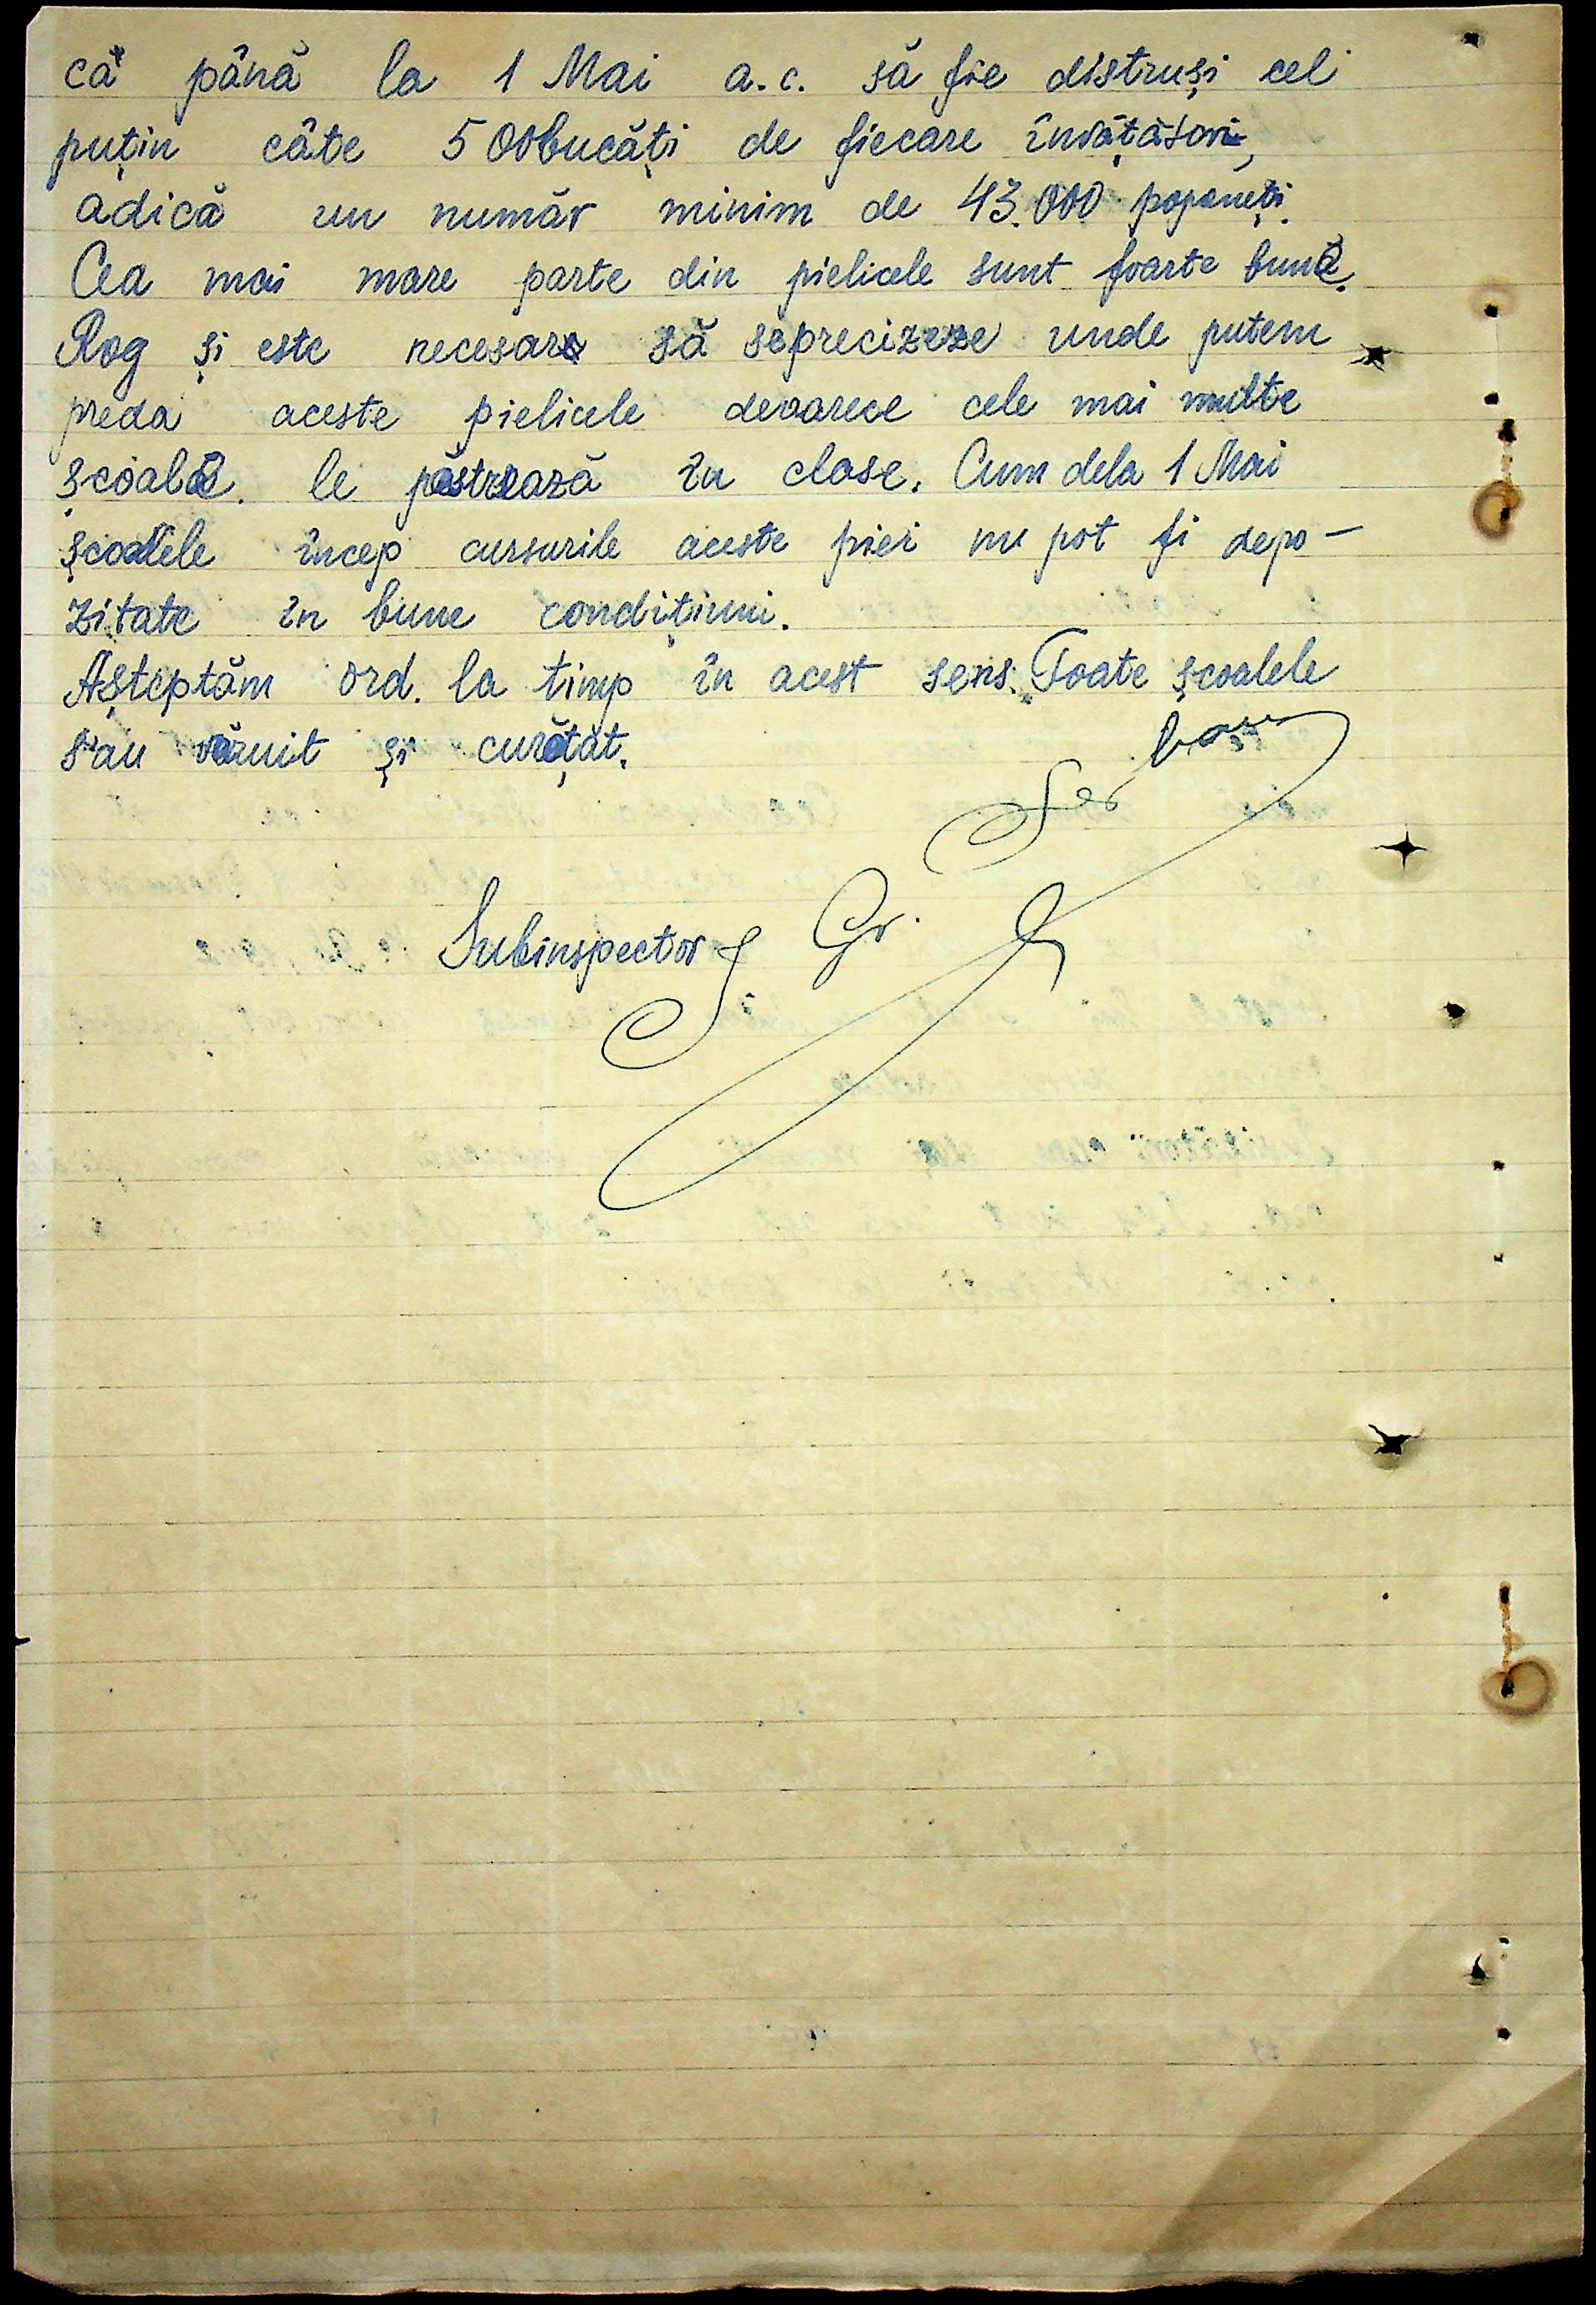 că până la 1 Mai a.c. să fie distruși cel
puțin câte 500 bucăți de fiecare învățător,
adică un număr minim de 43.000 popaneți.
Cea mai mare parte din pielicele sunt foarte bune.
Rog și este necesar să se precizeze unde putem
preda aceste pielicele deoarece cele mai multe
școale. le păstrează în clase. Cum dela 1 Mai
școalele încep cursurile aceste piei nu pot fi depo-
zitate în bune condițiuni.
Așteptăm ord. la timp în acest sens. Toate școalele
s'au văruit și curățat.
Subinspector J. Gr. Șerban